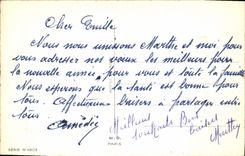 Cher Emile
Nous nous unissons Marthe et moi pour
vous adresser nos vœux les meilleurs pour
la nouvelle année pour vous et toute la famille
Nous esperons que la santé est bonne pour
tous. Affectueux baisers à partager entre
tous
Amédée
Meilleurs
souhaits Bons
baisers
Marthe
M.D.
PARIS
SÉRIE N°